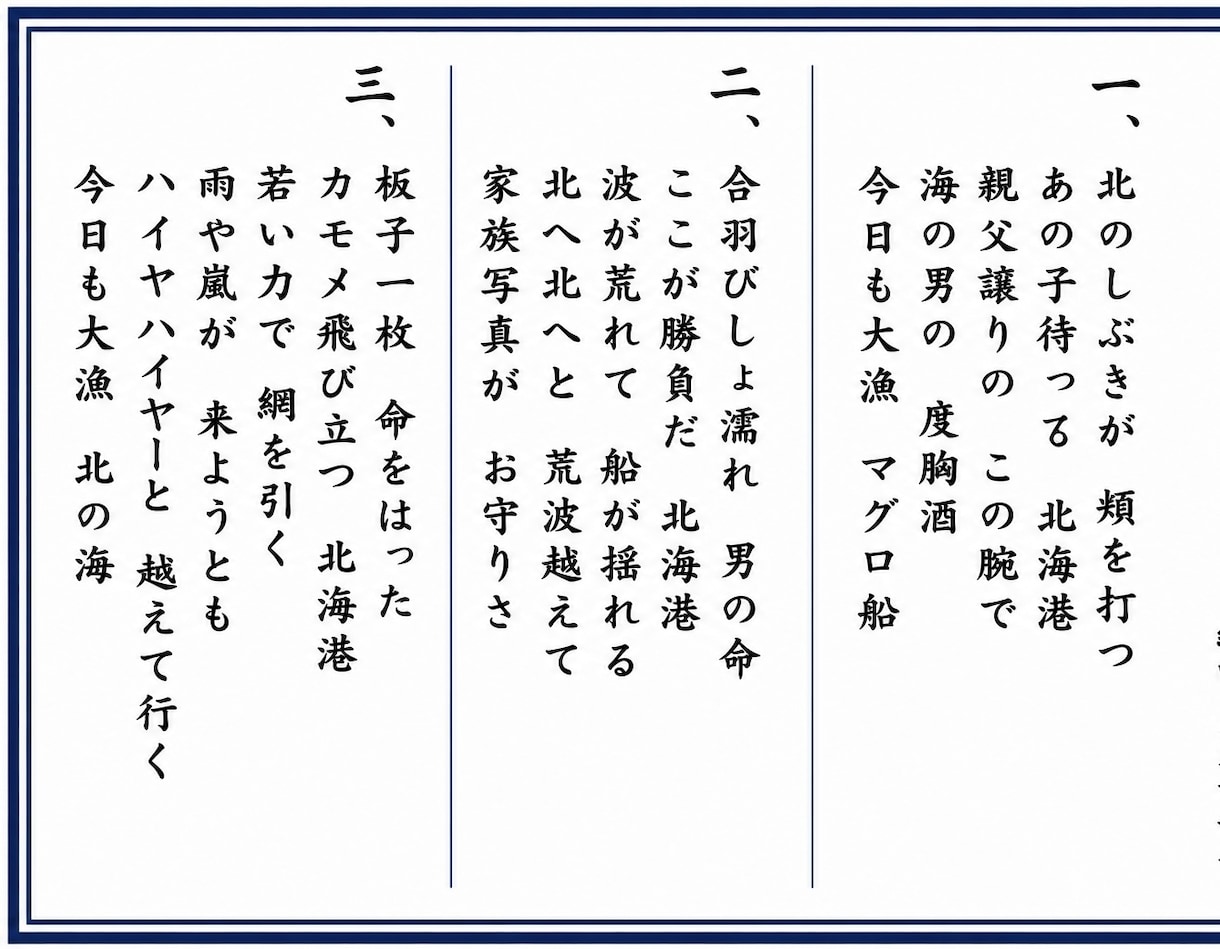 一、
北のしぶきが　頬を打つ
あの子待ってる　北海港
親父譲りの　この腕で
海の男の　度胸酒
今日も大漁　マグロ船
二、
合羽びしょ濡れ　男の命
ここが勝負だ　北海港
波が荒れて　船が揺れる
北へ北へと　荒波越えて
家族写真が　お守りさ
三、
板子一枚　命をはった
カモメ飛び立つ　北海港
若い力で　網を引く
雨や嵐が　来ようとも
ハイヤハイヤーと　越えて行く
今日も大漁　北の海